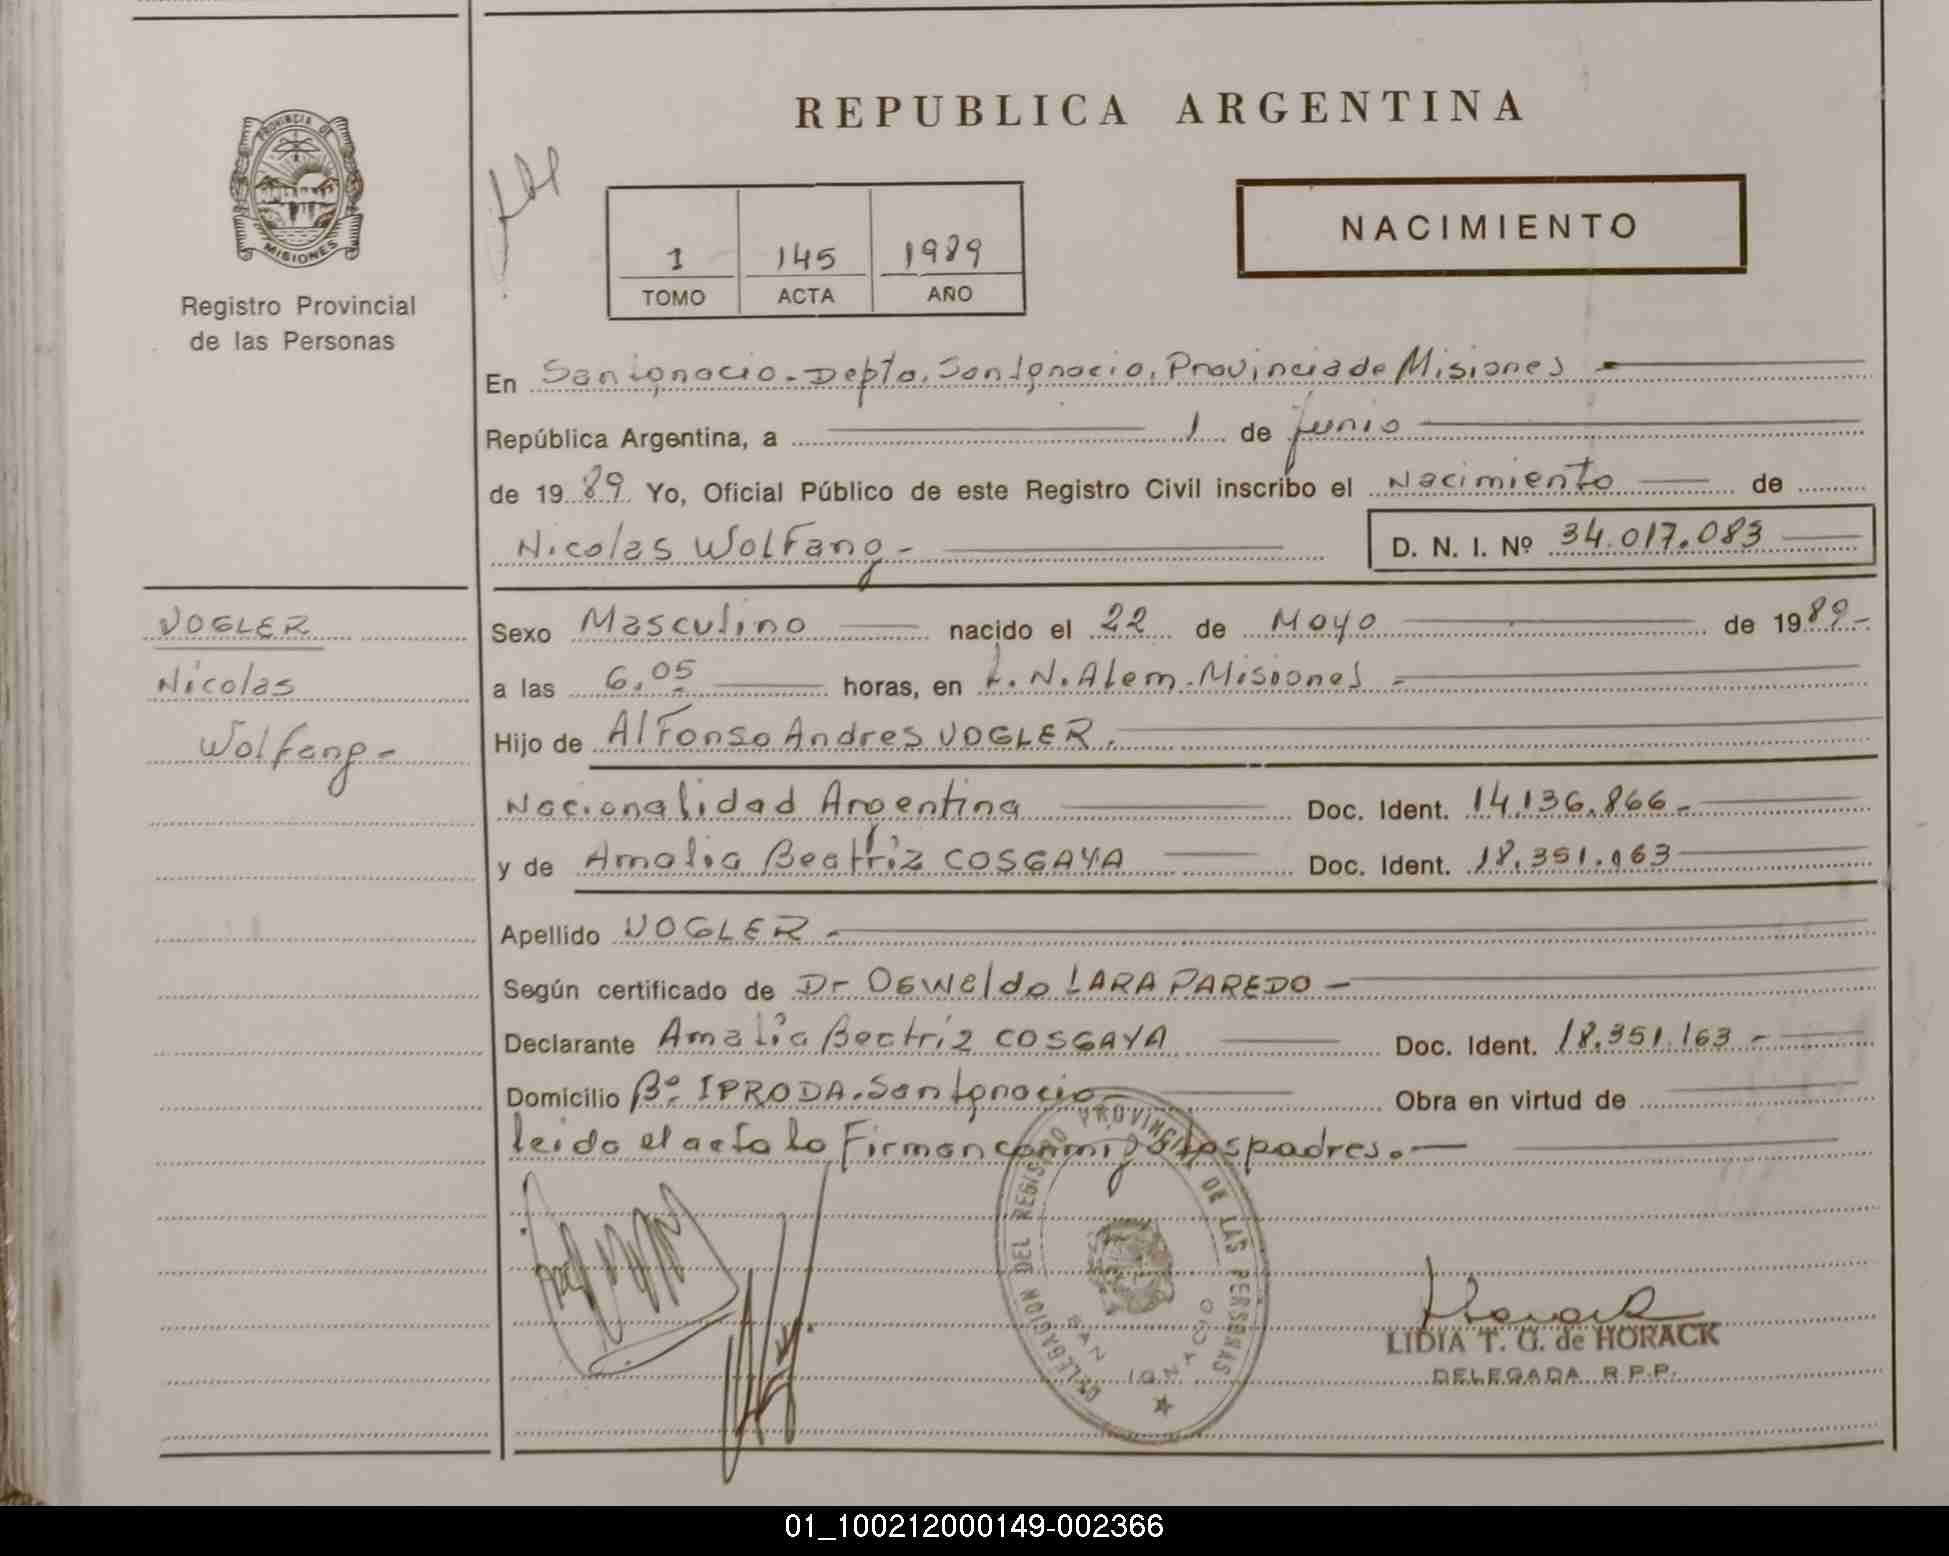 PROVINCIA DE
MISIONES
Registro Provincial
de las Personas
REPUBLICA ARGENTINA
NACIMIENTO
1 145 1989
TOMO ACTA AÑO
En San ignacio - Depto. San Ignacio. Provincia de Misiones
República Argentina, a 1 de junio
de 1989 Yo, Oficial Público de este Registro Civil inscribo el Nacimiento de
Nicolas Wolfang - D. N. I. Nº 34.017.083
VOGLER
Nicolas
Wolfang -
Sexo Masculino nacido el 22 de Mayo de 1989 -
a las 6,05 horas, en L. N. Alem - Misiones -
Hijo de Alfonso Andres VOGLER.
Nacionalidad Argentina Doc. Ident. 14.136.866 -
y de Amalia Beatriz COSGAYA Doc. Ident. 18.351.163
Apellido VOGLER -
Según certificado de Dr Oswaldo LARA PAREDO -
Declarante Amalia Beatriz COSGAYA Doc. Ident. 18.351.163 -
Domicilio Bº IPRODA - San Ignacio - Obra en virtud de
leido el acta lo Firman conmigo los padres. -
DELEGACION DEL REGISTRO PROVINCIAL DE LAS PERSONAS
SAN IGNACIO
Horack
LIDIA T. G. de HORACK
DELEGADA R.P.P.
01_100212000149-002366